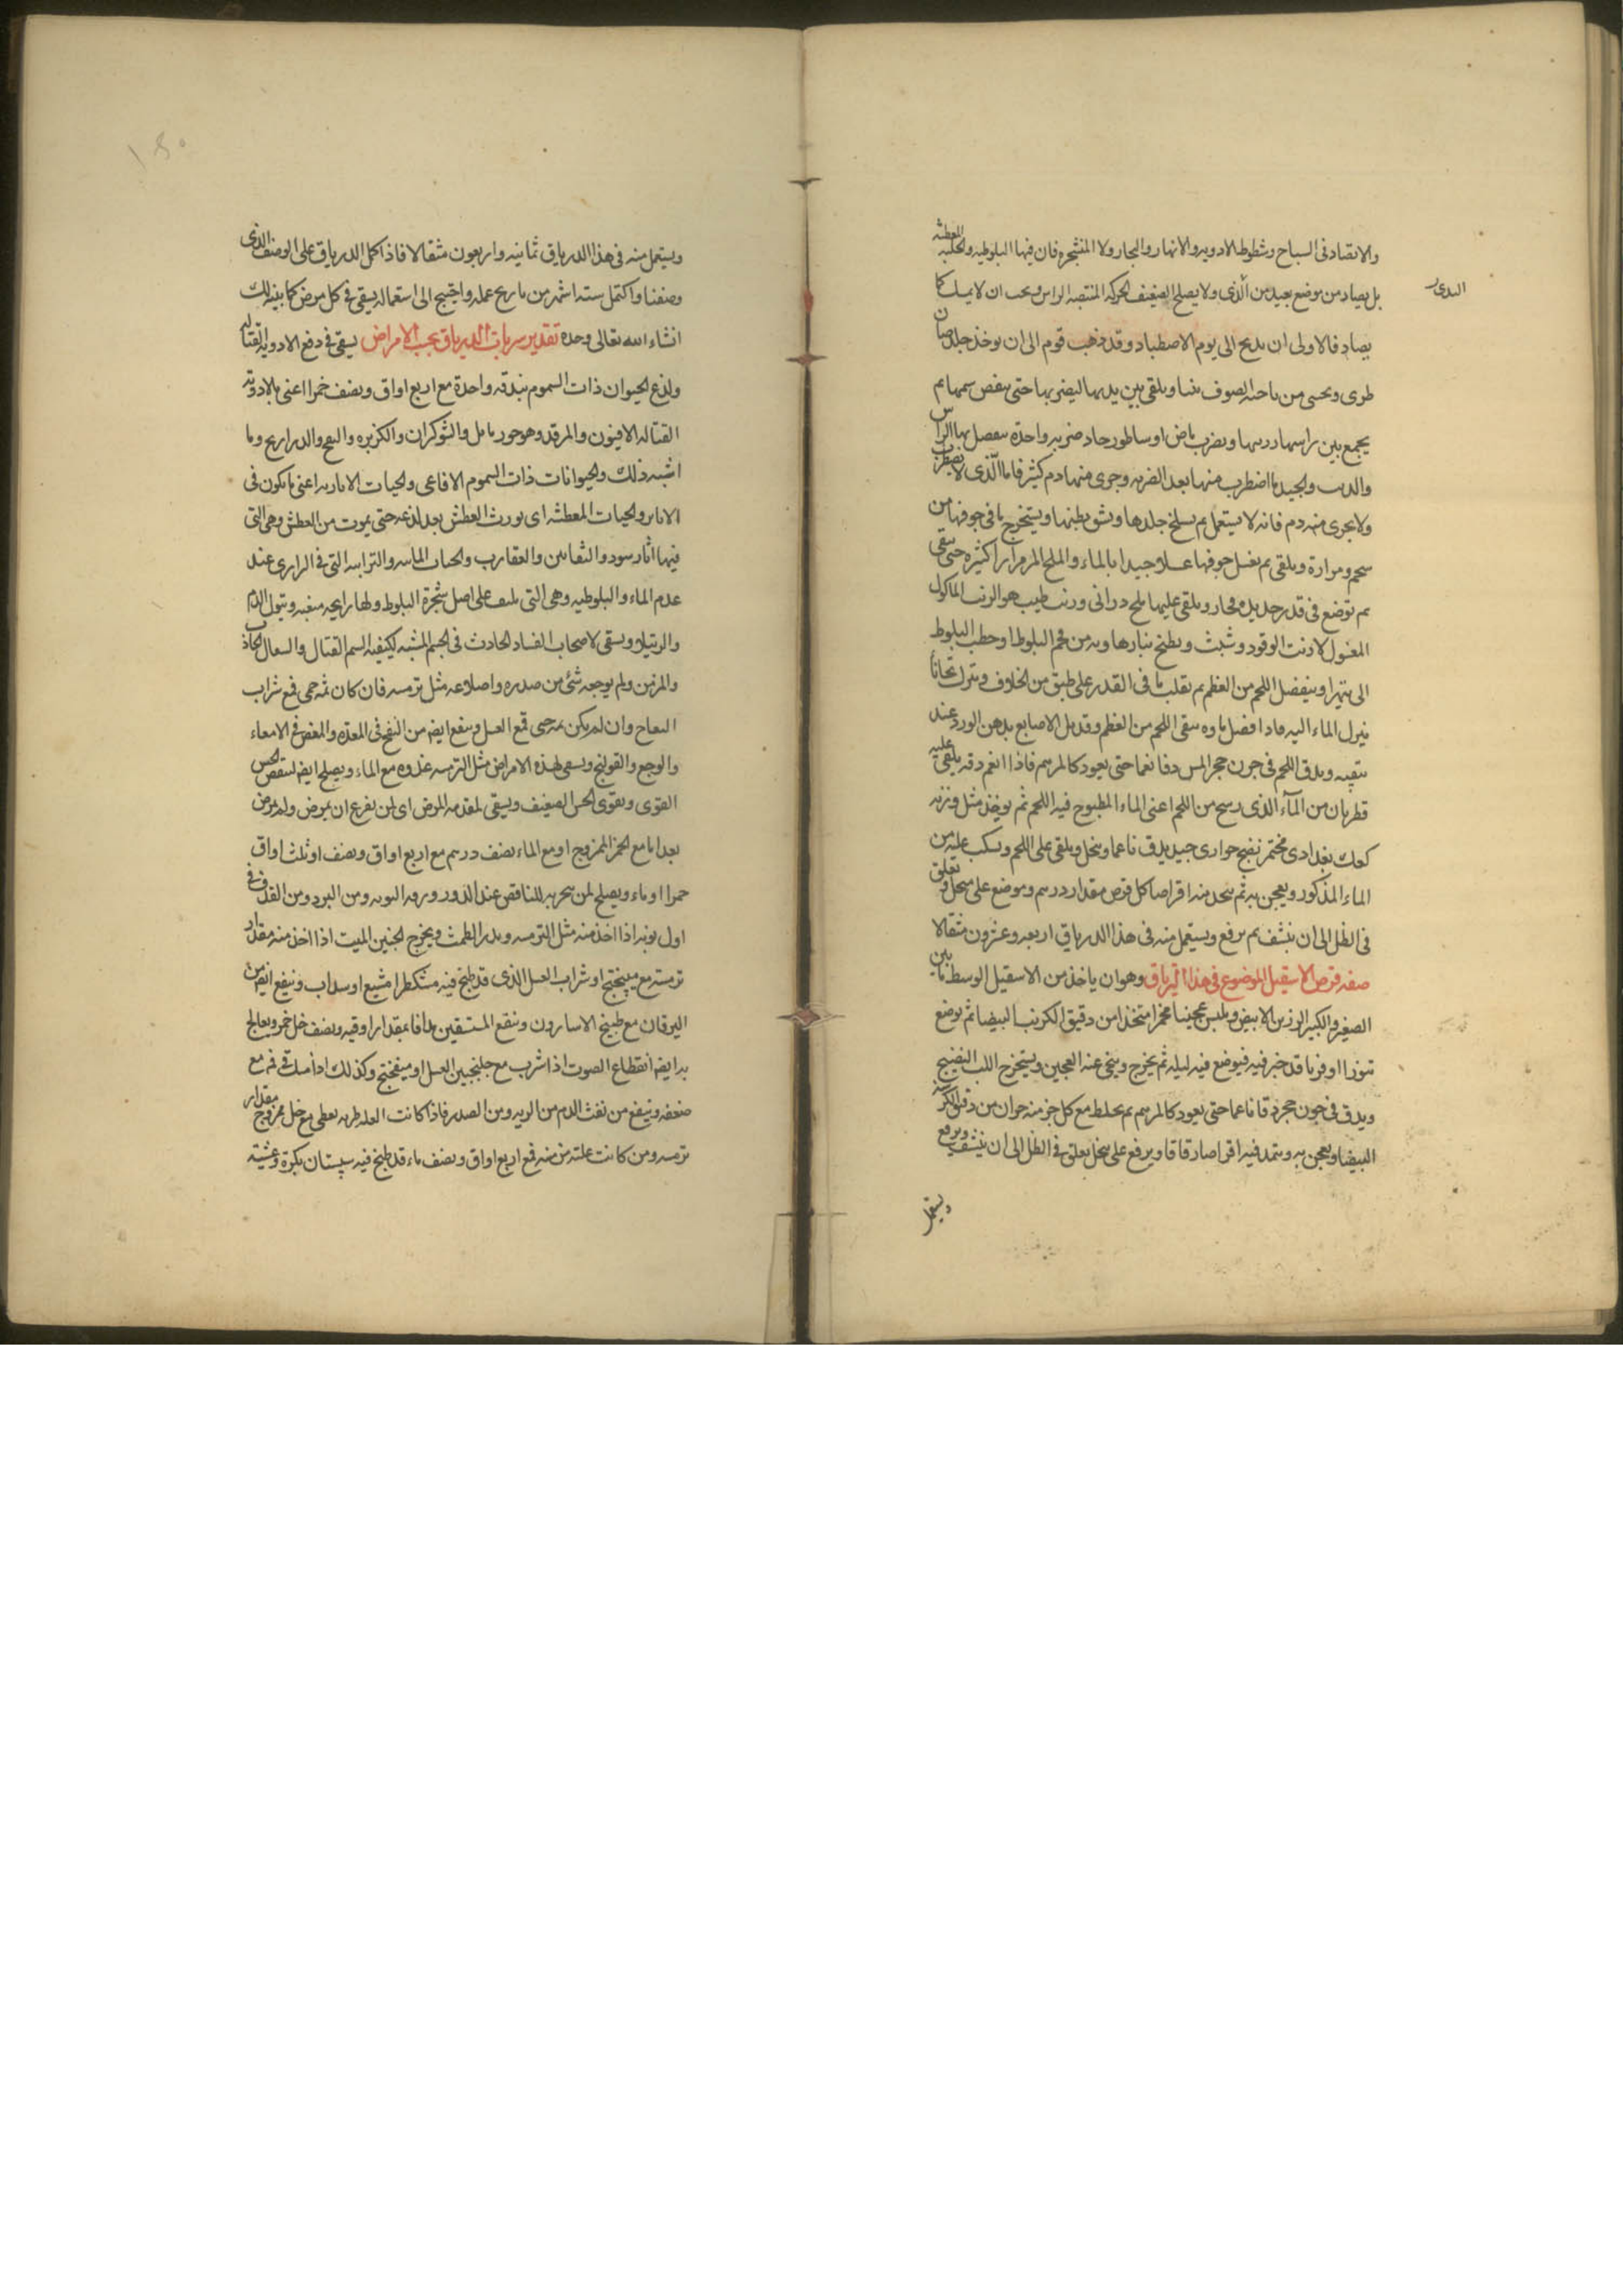 والا تصاد فى السباح وشطوط الادويه والانهار والبحار ولا المشجره فان فيها البلوطيه والمعطشه
بل يصاد من موضع بعيد من الندى ولا يصلح الضعيف الحركه المنتصبه الراس ويجب ان لا يمسك كما
يصاد فالاولى ان يذبح الى يوم الاصطياد وقد ذهب قوم الى ان يوخذ جلد ضان
طرى ويحسى من ناحيه الصوف تبنا ويلقى بين يديها ليضربها حتى ينقص سمها ثم
يجمع بين راسها وذنبها ويضرب اوساطور حاد ضربه واحده يفصل بها الراس
والذنب والجيد ما اضطرب منها بعد الضربه وجرى منها دم كثير فاما الذى لا يضطرب
ولا يجرى منه دم فانه لا يستعمل ثم يسلخ جلدها ويشق بطنها ويستخرج ما فى جوفها من
شحم ومرارة ويلقى ثم يغسل جوفها غسلا جيدا بالماء والملح المر مرارا كثيره حتى ينقى
ثم توضع فى قدر جديده فخار ويلقى عليها ملح درانى وزيت طيب هو الزيت الماكول
المغسول لا زيت الوقود وشبث ويطبخ بنار هاديه من فحم البلوط او حطب البلوط
الى يتهرا وينفصل اللحم من العظم ثم يقلب ما فى القدر على طبق من الخلاف ويترك تحتانا
فينزل الماء اليه فاذا افضل ماوه ينقى اللحم من العظم وقد بل الاصابع بدهن الورد عند
تنقيه ويدق اللحم فى جرن حجر املس دقا نعما حتى يعود كالمرهم فاذا انعم دقه يلقى عليه
قطرتان من الماء الذى رسح من اللحم اعنى الماء المطبوخ فيه اللحم ثم يوخذ مثل وزنه
كعك بغدادى مختمر نضيج حوارى جيد يدق ناعما وينخل ويلقى على اللحم ويسكب عليه من
الماء المذكور ويعجن به ثم يتخذ منه اقراصا كل قرص مقدار درهم وموضع على منخل وتعلق
فى الظل الى ان ينشف ثم يرفع ويستعمل منه فى هذا الدرياق اربعه وعشرون مثقالا
صفه قرص الاسقيل الموضوع فى هذا الترياق وهو ان ياخذ من الاسقيل الوسط ما بين
الصغير والكبير الوزين الابيض ويلبس عجينا مخمرا متخذا من دقيق الكرسنه البيضا ثم يوضع
تنورا او فرنا قد خبز فيه فيوضع فيه ليله ثم يخرج وينحى عنه العجين ويستخرج اللب النضيج
ويدق فى جرن حجر دقا ناعما حتى يعود كالمرهم ثم يخلط مع كل جز منه جزان من دقيق الكرسنه
البيضا ويعجن به ويتخذ فيه اقراصا رقاقا ويرفع على منخل يعلق فى الظل الى ان ينشف ويرفع
ويستعمل
ويستعمل منه فى هذا الدرياق ثمانيه واربعون مثقالا فاذا كمل الدرياق على الوصف الذى
وصفنا واكتمل سته اشهر من تاريخ عمله واحتيج الى استعماله يسقى فى كل مرض كما بينه لك
انشاء الله تعالى وحده تقدير شربات الدرياق بحسب الامراض يسقى فى دفع الادويه القتاله
ولذع الحيوان ذات السموم بندقه واحدة مع اربع اواق ونصف خمرا اعنى بالادويه
القتاله الافيون والمرقد وهو جوز ماثل والشوكران والكزبره والبنج والدراريح وما
اشبه ذلك والحيوانات ذات السموم الافاعى والحيات الاباريه اعنى ما يكون فى
الابار والحيات المعطشه اى يورث العطش بعد لذعه حتى يموت من العطش وهى التى
فيها اثار سود والثعابين والعقارب والحيات المائيه والترابيه التى فى البرارى عند
عدم الماء والبلوطيه وهى التى على اصل شجرة البلوط ولها رايحه منتنه وتبول الدم
والرتيلا ويسقى لاصحاب الفساد الحادث فى الجسم المشبه لكيفيه السم القتال والسعال الحاد
والمزمن ولم يوجعه شئ من صدره واضلاعه مثل ترمسه فان كان ثمه حمى فمع شراب
التفاح وان لم يكن ثمه حمى فمع العسل وينفع ايضا من النفخ فى المعده والمغص فى الامعاء
والوجع والقولنج ويسقى لهذه الامراض مثل الترمسه غدوه مع الماء ويصلح ايضا لنقص الحس
القوى ويقوى الحس الضعيف ويسقى لمقدمه المرض اى لمن يفزع ان يمرض ولم يمرض
بعد اما مع الخمر الممزوج او مع الماء نصف درهم مع اربع اواق ونصف او ثلث اواق
خمرا او ماء ويصلح لمن للنافض عند الدور ومن البرد ومن القذف فى
اول نوبه اذا اخذ منه مثل الترمسه ويدر الطمث ويخرج الجنين الميت اذا اخذ منه مقدار
ترمسه مع ميبختج او شراب العسل الذى قد طبخ فيه مشكطرا مشيع او سداب وينفع ايضا من
اليرقان مع طبيخ الاسارون وينفع المستسقين مدافا بمقدار اوقيه ونصف خل خمر ويعالج
به ايضا انقطاع الصوت اذا شرب مع جلنجبين العسل او ميفختج وكذلك اذا مسك فى فم مع
ضعفه وينفع من نفث الدم من الريه ومن الصدر فاذا كانت العله طريه يعطى مع خل ممزوج مقدار
ترمسه ومن كانت علته مزمنه فمع اربع اواق ونصف ماء قد طبخ فيه سبستان بكرة وعشية